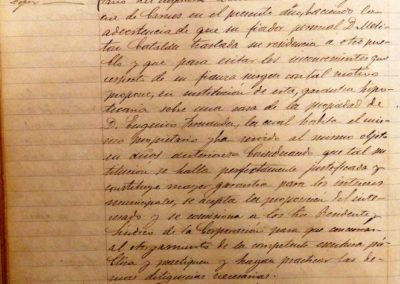 cia de carnes en el presente año, haciendo la
advertencia de que su fiador personal D. Meli-
tón Cataldo traslada su residencia a otro pue-
blo y que para evitar los inconvenientes que
respecto de su fianza surgen con tal motivo
propone, en sustitución de esta, garantia hipo-
tecaria sobre una casa de la propiedad de
D. Eugenio Fernandez, la cual
propietario ha servido al mismo objeto
en años anteriores Considerando que tal sus-
titucion se halla perfectamente justificada y
constituye mayor garantia para los intereses
municipales, se acepta la proposicion del inte-
resado y se comisiona a los Sres Presidente y
Sindico de la Corporacion para que concurran
al otorgamiento de la competente escritura pú-
blica y practiquen y hagan practicar las de-
mas diligencias necesarias.